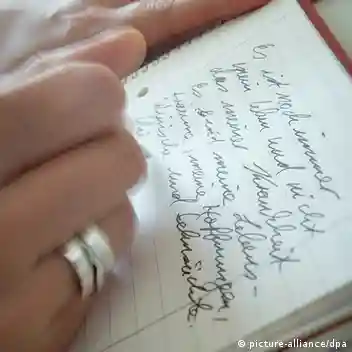 Es ist noch immer
mein Leben und nicht
das meiner Krankheit
Es sind meine Lebens-
träume, meine Hoffnungen,
Wünsche und Sehnsüchte.
© picture-alliance/dpa